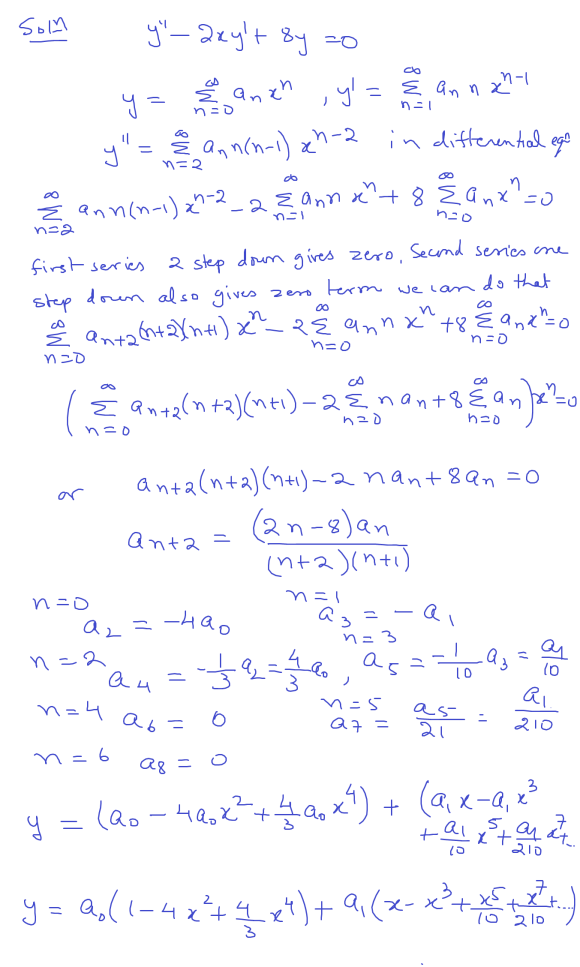 Soln y'' - 2xy' + 8y = 0
y = ∞Σn=0 aₙxⁿ , y' = ∞Σn=1 aₙ n xⁿ⁻¹
y'' = ∞Σn=2 aₙ n(n-1) xⁿ⁻² in differential eqn
∞Σn=2 aₙ n(n-1) xⁿ⁻² - 2 ∞Σn=1 aₙ n xⁿ + 8 ∞Σn=0 aₙxⁿ = 0
first series 2 step down gives zero, Second series one
step down also gives zero term we can do that
∞Σn=0 aₙ₊₂(n+2)(n+1) xⁿ - 2 ∞Σn=0 aₙ n xⁿ + 8 ∞Σn=0 aₙxⁿ = 0
( ∞Σn=0 aₙ₊₂(n+2)(n+1) - 2 ∞Σn=0 n aₙ + 8 ∞Σn=0 aₙ ) xⁿ = 0
or aₙ₊₂(n+2)(n+1) - 2 n aₙ + 8 aₙ = 0
aₙ₊₂ = (2n-8)aₙ / (n+2)(n+1)
n=0 a₂ = -4a₀ n=1 a₃ = -a₁
n=2 a₄ = -1/3 a₂ = 4/3 a₀ , n=3 a₅ = -1/10 a₃ = a₁/10
n=4 a₆ = 0 n=5 a₇ = a₅/21 = a₁/210
n=6 a₈ = 0
y = (a₀ - 4a₀x² + 4/3 a₀ x⁴) + (a₁x - a₁x³
+ a₁/10 x⁵ + a₁/210 x⁷+...
y = a₀(1 - 4x² + 4/3 x⁴) + a₁(x - x³ + x⁵/10 + x⁷/210 +...)